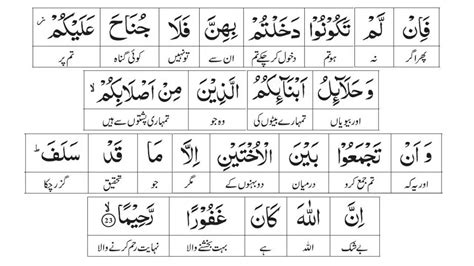 فَاِنْ لَّمْ تَكُوْنُوْا دَخَلْتُمْ بِهِنَّ فَلَا جُنَاحَ عَلَيْكُمْ
پھر اگر نہ ہو تم دخول کر چکے تم ان سے تو نہیں کوئی گناہ تم پر
وَحَلَآئِلُ اَبْنَآئِكُمُ الَّذِيْنَ مِنْ اَصْلَابِكُمْ ۙ
اور بیویاں تمہارے بیٹوں کی وہ جو تمہاری پشتوں سے ہیں
وَ اَنْ تَجْمَعُوْا بَيْنَ الْاُخْتَيْنِ اِلَّا مَا قَدْ سَلَفَ ؕ
اور یہ کہ تم جمع کرو درمیان دو بہنوں کے مگر جو تحقیق گزر چکا
اِنَّ اللّٰهَ كَانَ غَفُوْرًا رَّحِيْمًا ۙ 23
بے شک اللہ ہے بہت بخشنے والا نہایت رحم کرنے والا